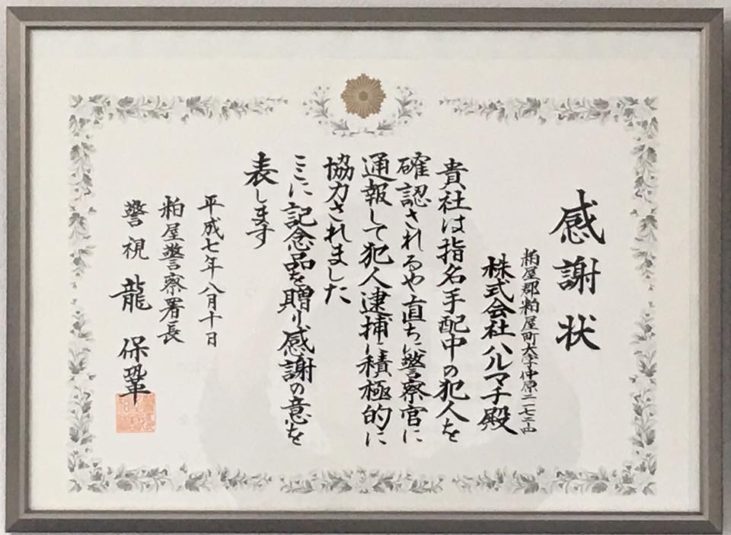 感謝状
粕屋郡粕屋町大字仲原二一七三の
株式会社ハルマチ殿
貴社は指名手配中の犯人を
確認されるや直ちに警察官に
通報して犯人逮捕に積極的に
協力されました
ここに記念品を贈り感謝の意を
表します
平成七年八月十日
粕屋警察署長
警視 龍 保鞏